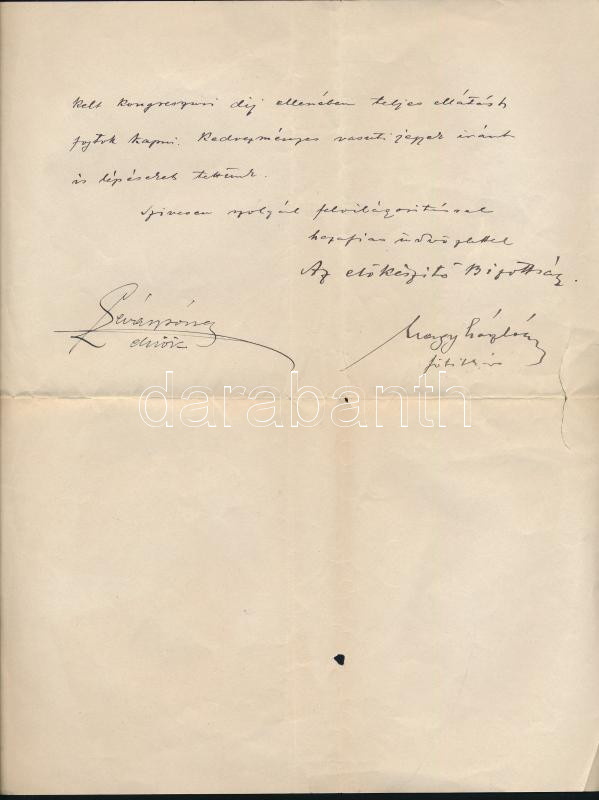 kelt kongresszusi díj ellenében teljes ellátást
fogtok kapni. Kedvezményes vasuti jegyek iránt
is lépéseket tettünk.
Szivesen szolgál felvilágositással
hazafias üdvözlettel
Az előkészitő Bizottság.
elnök
Nagy László
főtitkár
darabanth